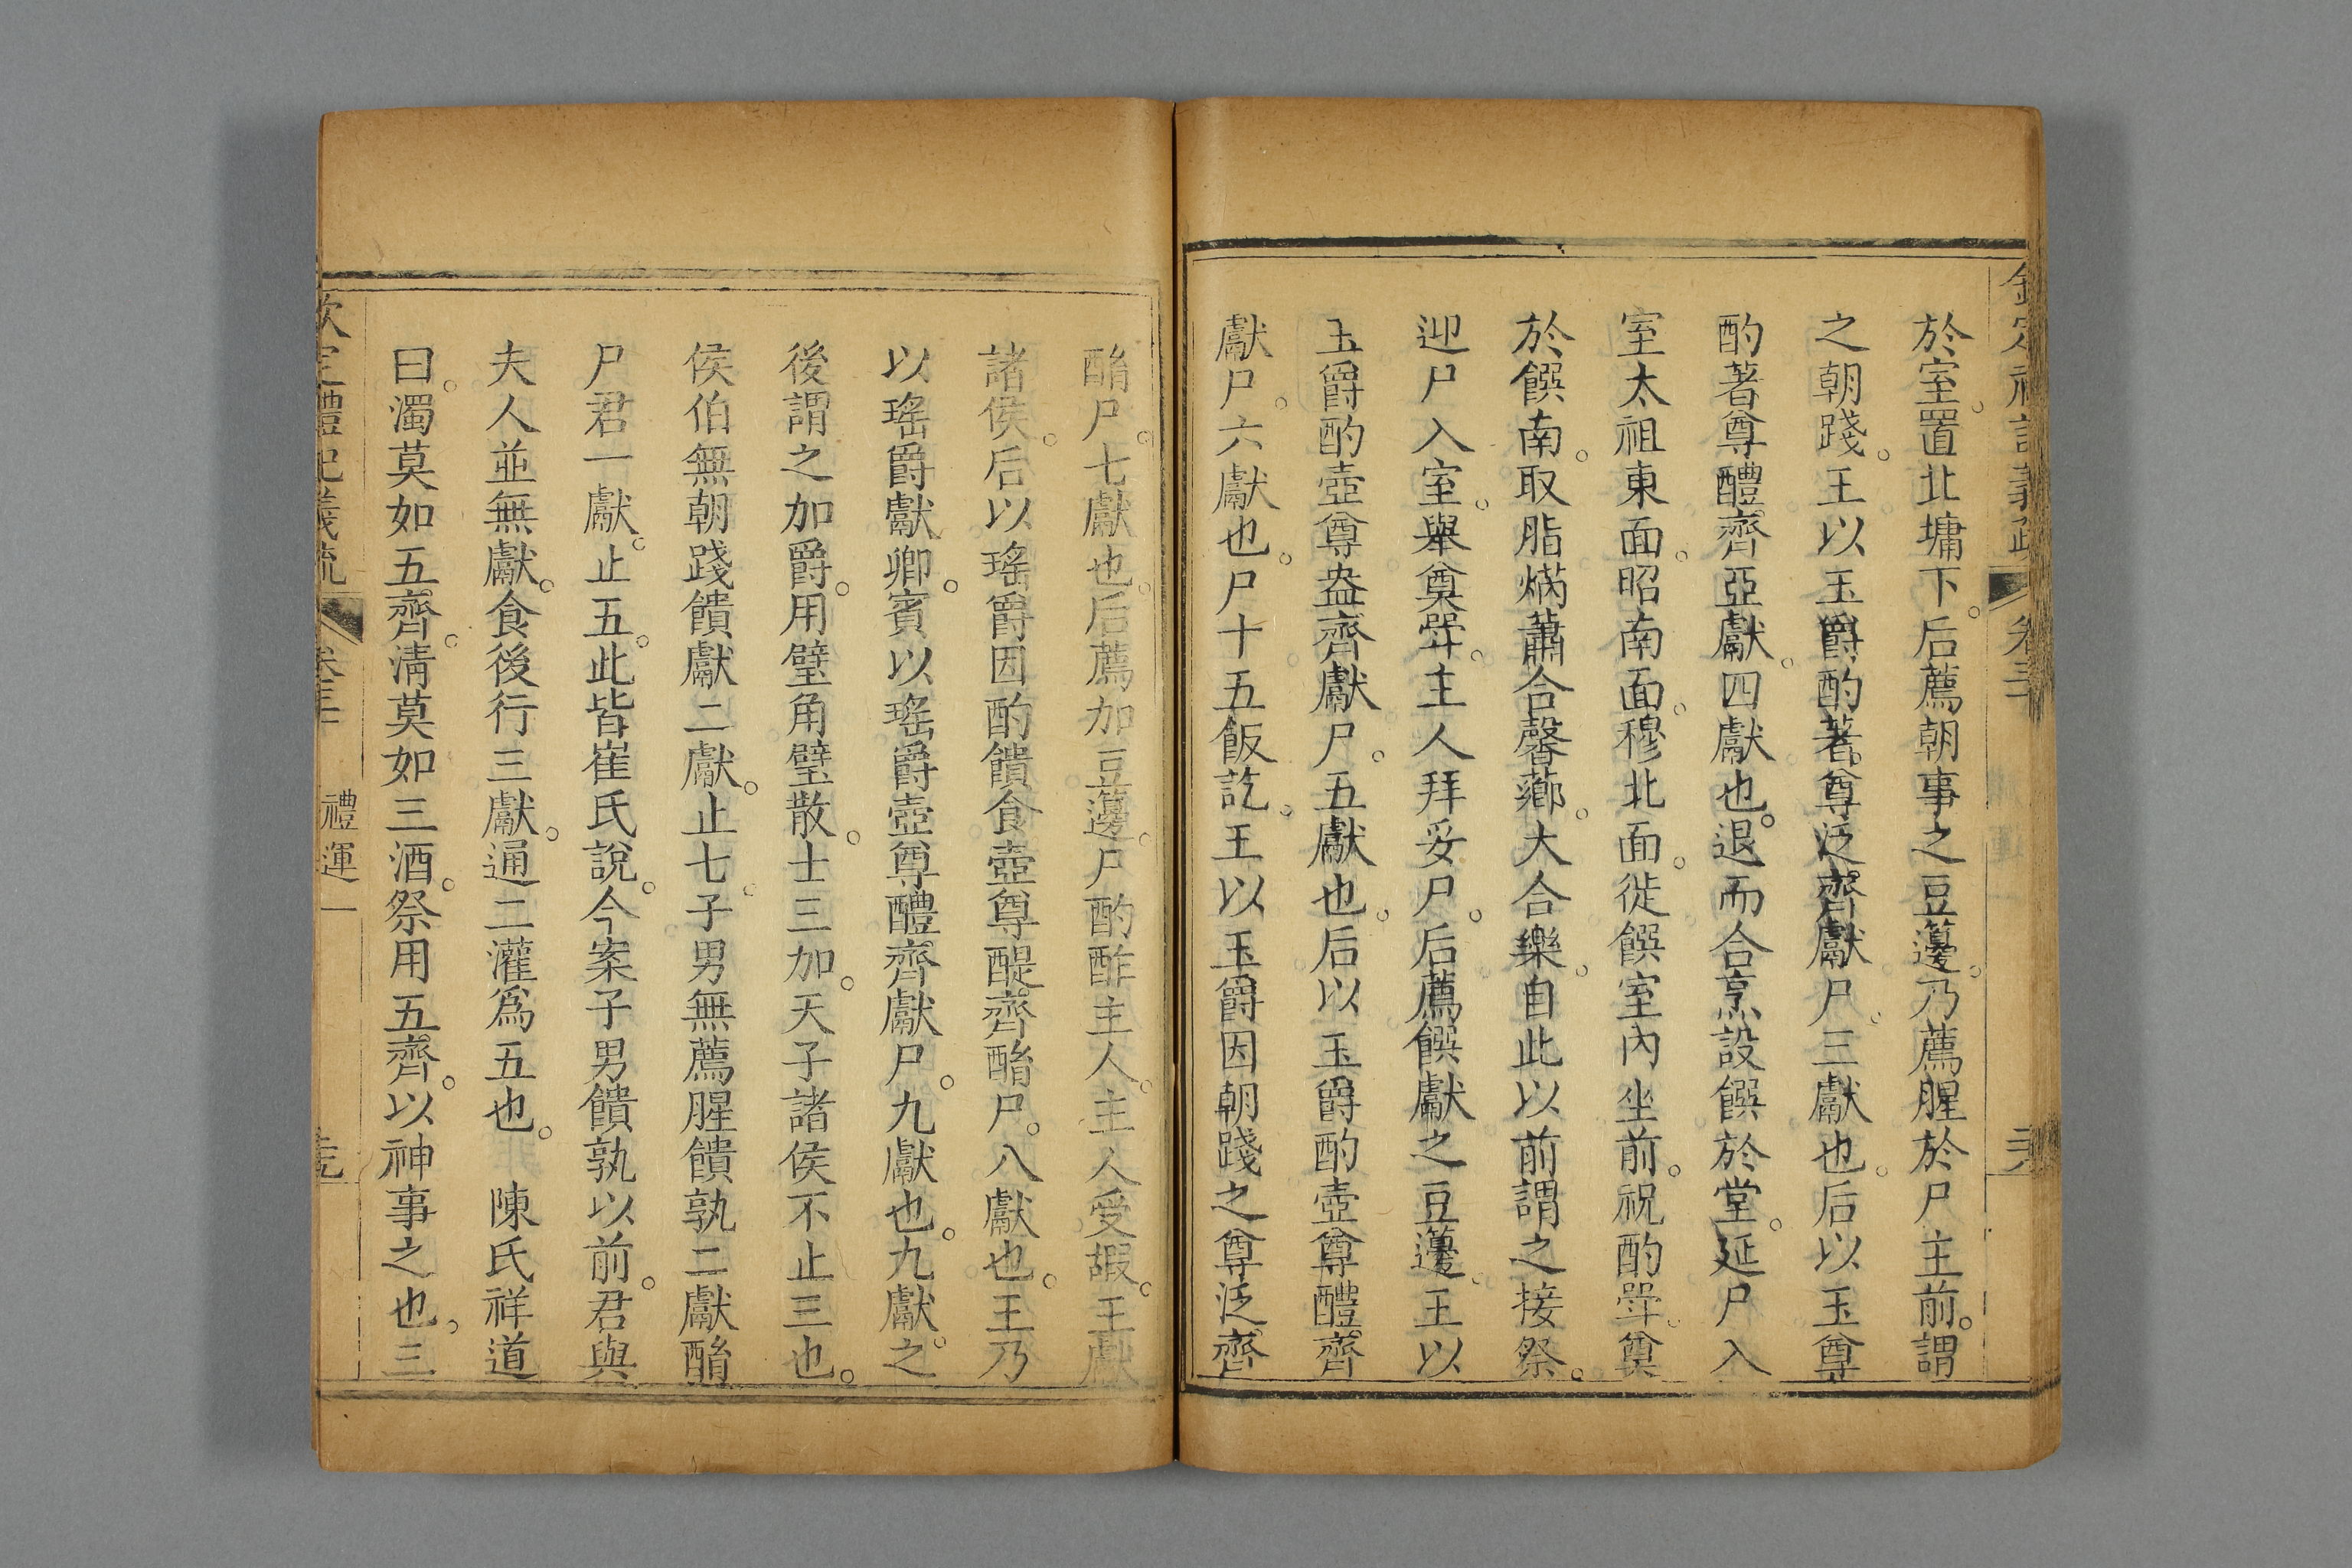 於室。置北墉下。后薦朝事之豆籩。乃薦腥於尸主前。謂
之朝踐。王以玉爵酌著尊泛齊獻尸。三獻也。后以玉尊
酌著尊醴齊亞獻。四獻也。退而合烹設饌於堂。延尸入
室太祖東面。昭南面。穆北面。徙饌室內坐前。祝酌斝。奠
於饌南。取脂焫蕭合馨薌。大合樂。自此以前謂之接祭。
迎尸入室。舉奠斝。主人拜妥尸。后薦饌獻之豆籩。王以
玉爵酌壺尊盎齊獻尸。五獻也。后以玉爵酌壺尊醴齊
獻尸。六獻也。尸十五飯訖。王以玉爵因朝踐之尊泛齊
酳尸。七獻也。后薦加豆籩。尸酌酢主人。主人受嘏。王獻
諸侯。后以瑤爵因酌饋食壺尊醍齊酳尸。八獻也。王乃
以瑤爵獻卿。賓以瑤爵壺尊醴齊獻尸。九獻也。九獻之
後謂之加爵。用璧角璧散。士三加。天子諸侯不止三也。
侯伯無朝踐饋獻二獻。止七。子男無薦腥饋孰二獻酳
尸君一獻。止五。此皆崔氏說。今案子男饋孰以前。君與
夫人並無獻。食後行三獻。通二灌爲五也。 陳氏祥道
曰。濁莫如五齊。清莫如三酒。祭用五齊。以神事之也。三
欽定禮記義疏 禮運一